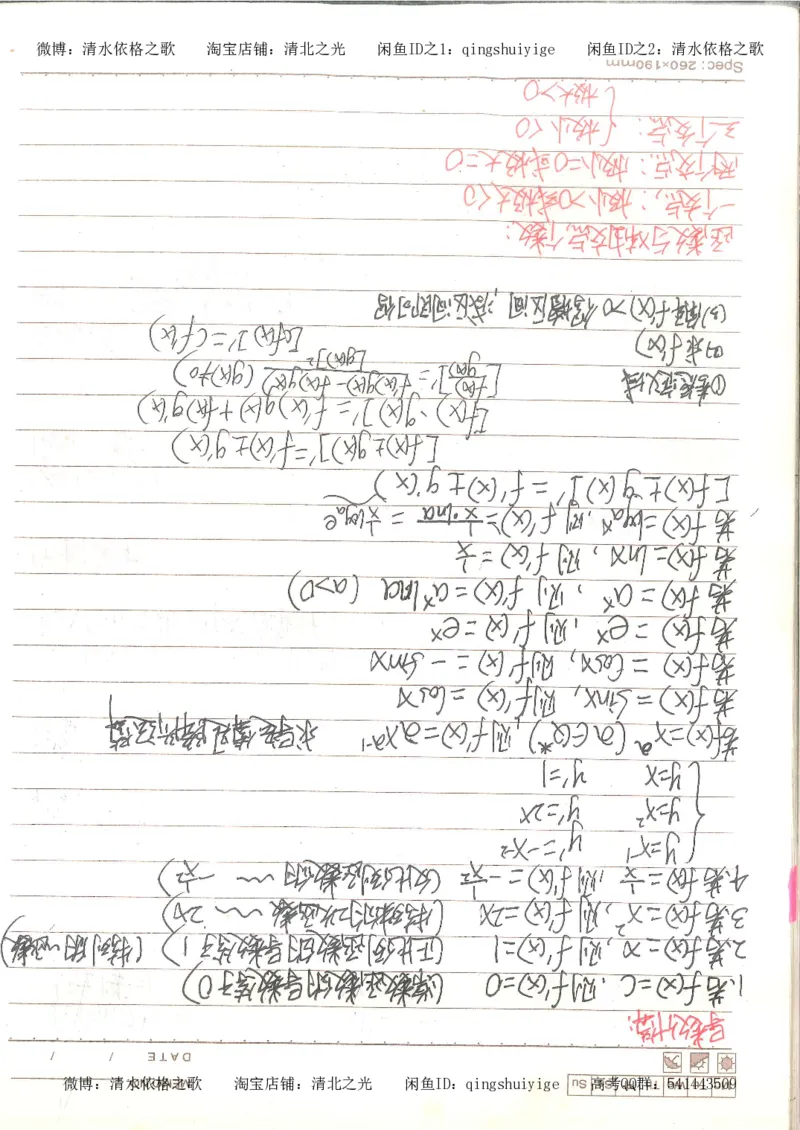 微博：清水依格之歌 淘宝店铺：清北之光 闲鱼ID之1：qingshuiyige 闲鱼ID之2：清水依格之歌
DATE / /
导数计算：
1.若f(x)=C，则f'(x)=0 (常数函数的导数等于0)
2.若f(x)=x，则f'(x)=1 (正比例函数的导数等于1) (特别的一次函数)
3.若f(x)=x²，则f'(x)=2x (特殊的二次函数 ~~ 2x)
4.若f(x)=1/x，则f'(x)=-1/x² (反比例函数的 ~~ -1/x²)
y=x⁻¹ y'=-x⁻²
y=x² y'=2x
y=x y'=1
若f(x)=xᵃ (a∈Q*)，则f'(x)=axᵃ⁻¹ 求导法满足降阶运算
若f(x)=sinx，则f'(x)=cosx
若f(x)=cosx，则f'(x)=-sinx
若f(x)=eˣ，则f'(x)=eˣ
若f(x)=aˣ，则f'(x)=aˣlna (a>0)
若f(x)=lnx，则f'(x)=1/x
若f(x)=logₐx，则f'(x)=1/(x·lna)=1/x logₐe
[f(x)±g(x)]'=f'(x)±g'(x)
[f(x)±g(x)]'=f'(x)±g'(x)
[f(x)·g(x)]'=f'(x)g(x)+f(x)g'(x)
①考虑定义域 [f(x)/g(x)]'=(f'(x)g(x)-f(x)g'(x))/[g(x)]² (g(x)≠0)
②求f'(x) [cf(x)]'=cf'(x)
(3)解f'(x)>0得增区间，减区间同样
函数与x轴交点个数：
一个交点：极小>0或极大<0
两个交点：极小=0或极大=0
三个交点：{极小<0
极大>0
Spec: 260×190mm
微博：清水依格之歌 淘宝店铺：清北之光 闲鱼ID：qingshuiyige 高考QQ群：541443509